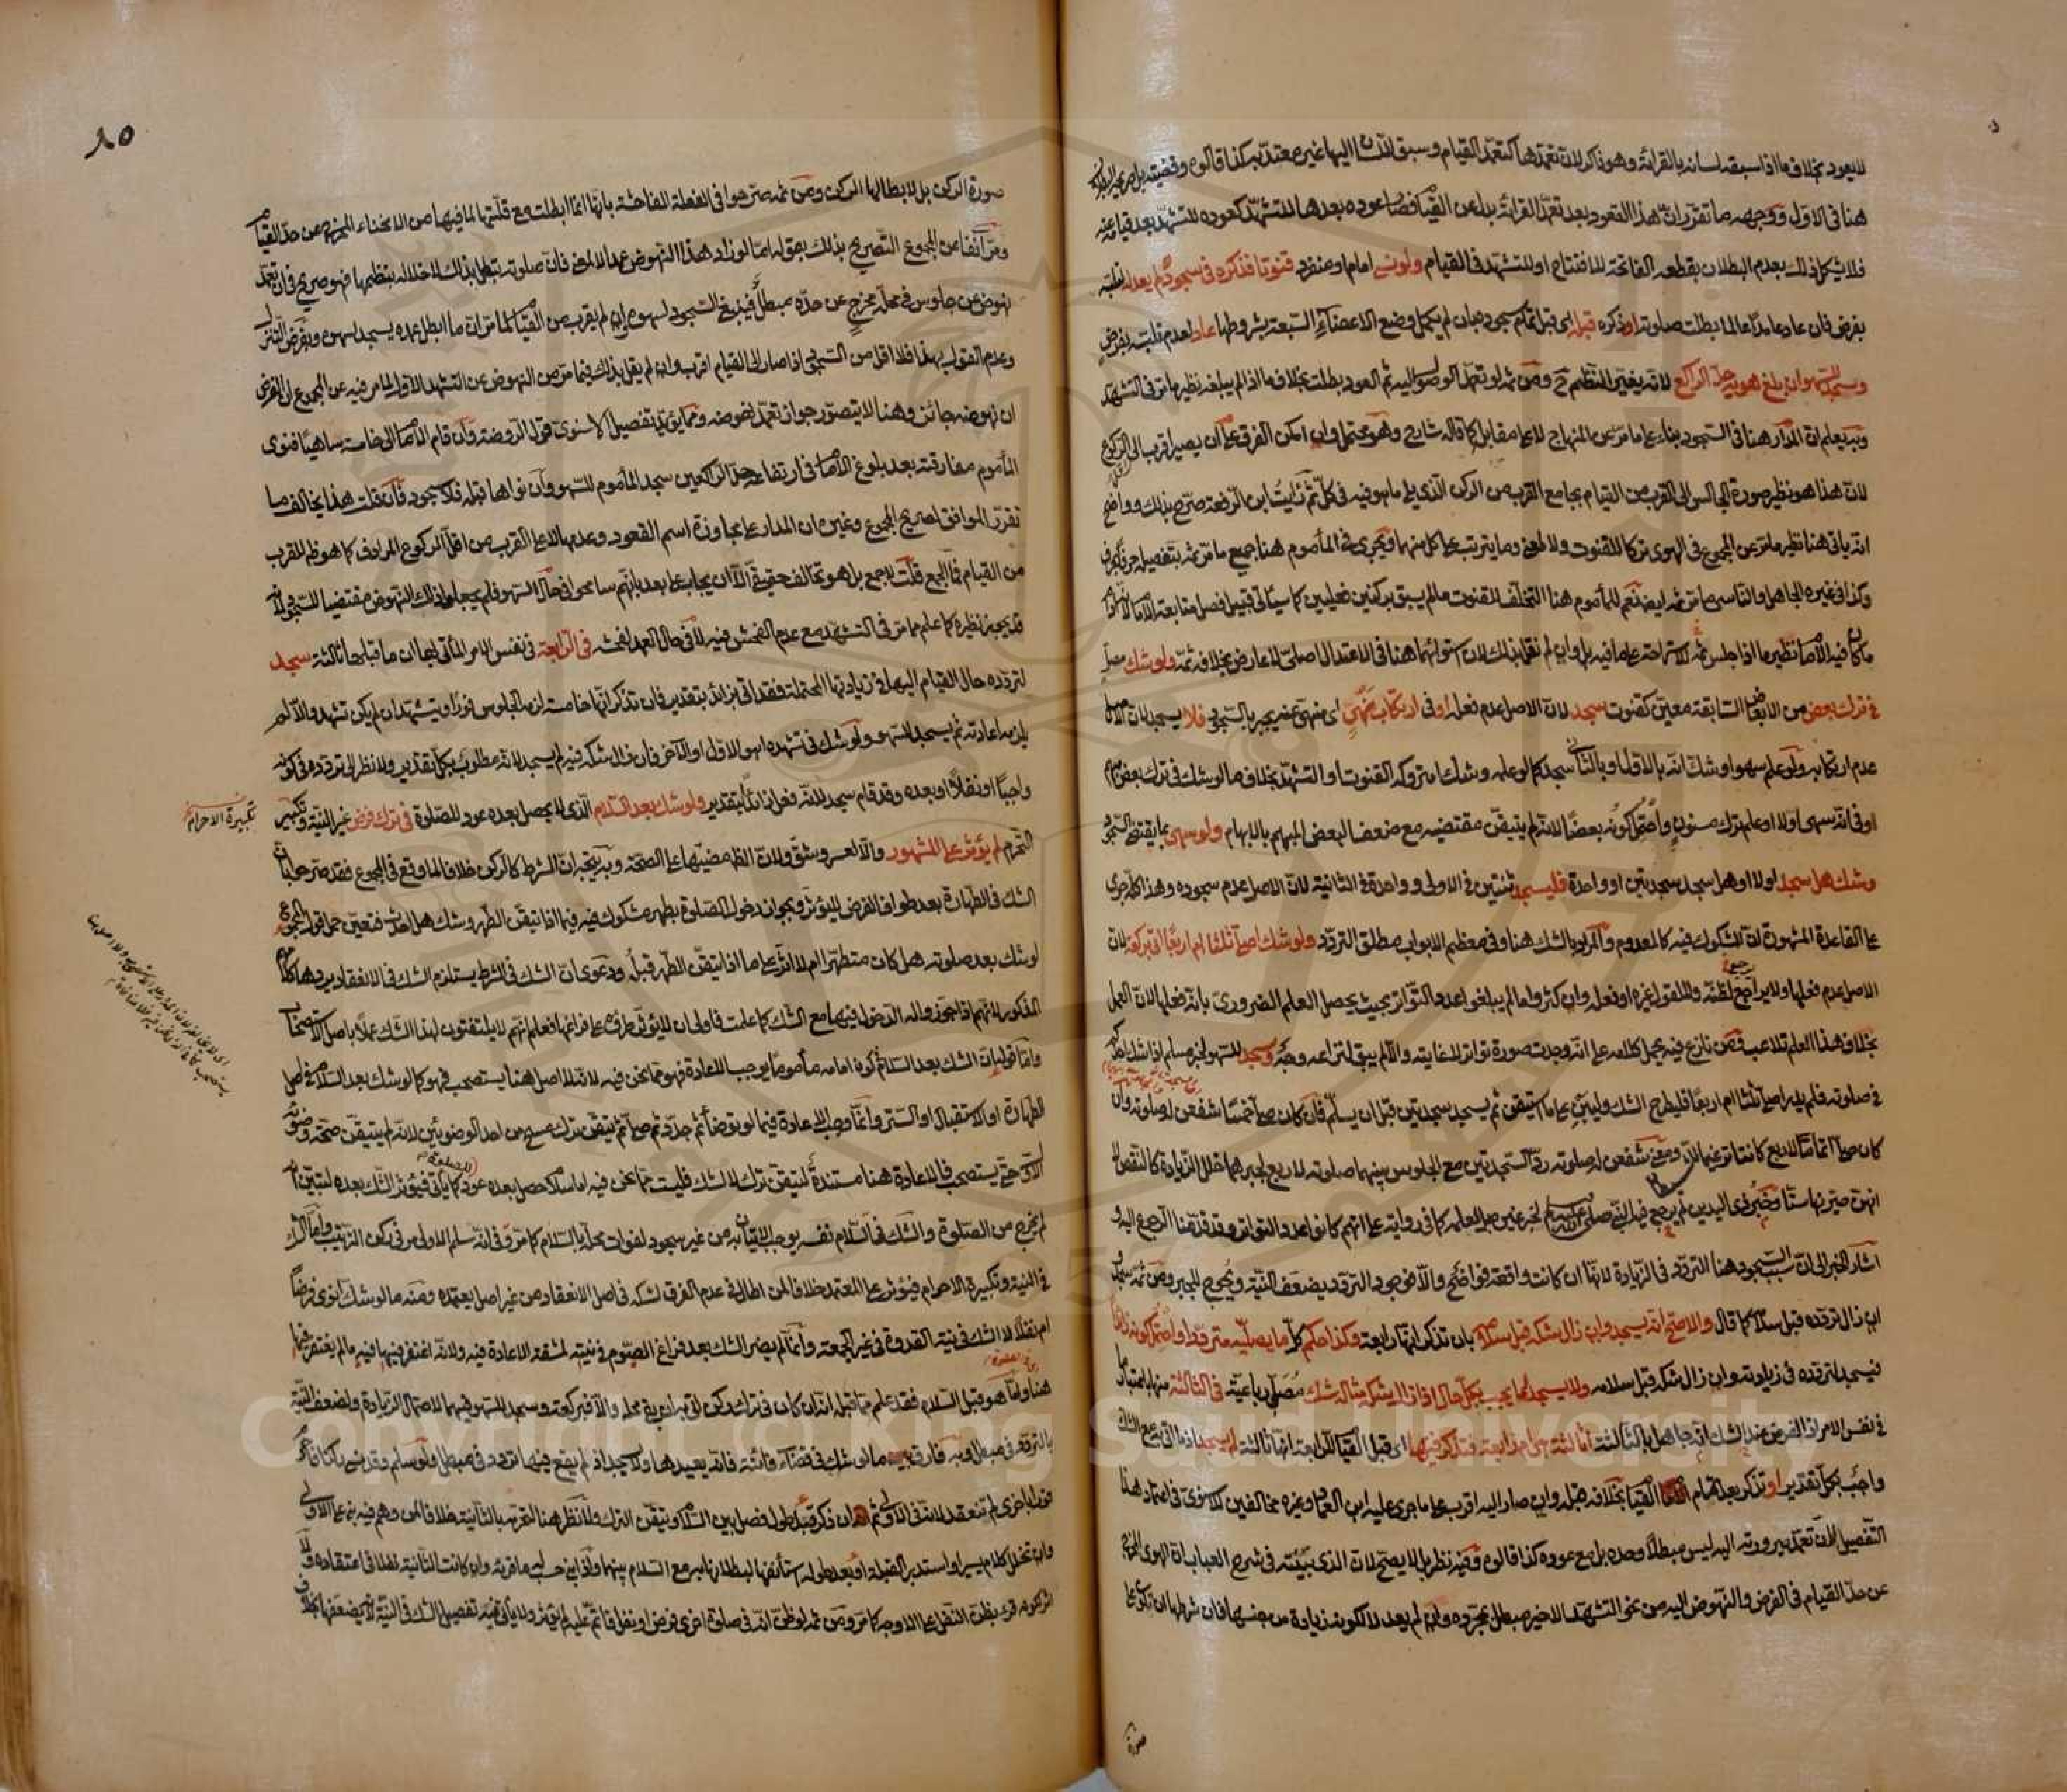 لا يعود بخلاف ما اذا سبقه لسانه بالقرائة وهو ذاكر لان تعمدها كتعمد القيام وسبق اللسان اليها غير معتد به كذا قالوه وقضيته
هنا في الاول ووجهه ما تقرر ان هذا القعود بعد تعمد القرائة بدل عن القيام فصار عوده بعدها للتشهد كعوده للتشهد بعد قيامه عنه
فلا يشكل ذلك بعدم البطلان بقطعه الفاتحة للافتتاح او للتشهد في القيام ولو نسي امام او منفرد قنوتا فذكره في سجوده لم يعد له لتلبسه
بفرض فان عاد عامدا عالما بطلت صلوته او ذكره قبله اي قبل تمام سجوده بان لم يكمل وضع الاعضاء السبعة بشروطها عاد لعدم تلبسه بفرض
وسجد للسهو ان بلغ هويه حد الراكع لانه يغير النظم ح ومن ثمه لو تعمد الوصول اليه ثم العود بطلت بخلاف ما اذا لم يبلغه نظير ما مر في التشهد
وبه يعلم ان المدار هنا في السجود بناء على ما مر عن المنهاج لا على مقابله كما قاله شارح وهو محتمل وان امكن الفرق على ان يصير اقرب الى الركوع
لان هذا هو نظير صورة الجالس الى القرب من القيام بجامع القرب من الركن الذي يلي ما هو فيه في كل ثم رأيت ابن الرفعة صرح بذلك وواضح
انه ياتي هنا نظير ما مر عن المجموع في الهوي تركا للقنوت ولا لمعنى وما يترتب على كل منهما ويجري في المأموم هنا جميع ما مر ثمه بتفصيله حرفا بحرف
وكذا في غيره الجاهل والناسي ما مر ثمه ايضا نعم للمأموم هنا التخلف للقنوت ما لم يسبق بركنين فعليين كما سيأتي قبيل فصل متابعة الامام
ما كان فيه الامام نظير ما اذا جلس ثمه للاستراحة على ما فيه بل وان لم نقل بذلك لان استوائهما هنا في الاعتدال اصلي لا عارض بخلافه ثمه ولو شك مصل
في ترك بعض من الابعاض السابقة معين كقنوت سجد لان الاصل عدم فعله او في ارتكاب منهي اي منهي عنه يجبر بالسجود فلا يسجد لان الاصل
عدم ارتكابه ولو علم سهوا وشك انه بالاول او بالثاني سجد كما لو علمه وشك امتروكه القنوت او التشهد بخلاف ما لو شك في ترك بعض مبهم
او في انه سهى اولا او علم ترك مسنون واحتمل كونه بعضا لانه لم يتيقن مقتضيه مع ضعف البعض المبهم بالابهام ولو سهى بما يقتضي السجود
وشك هل سجد اولا او هل سجد سجدتين او واحدة فليسجد ثنتين في الاولى وواحدة في الثانية لان الاصل عدم سجوده وهذا كله جرى
على القاعدة المشهورة ان المشكوك فيه كالمعدوم والمراد بالشك هنا وفي معظم الابواب مطلق التردد ولو شك اصلى ثلثا ام اربعا اتى بركعة لان
الاصل عدم فعلها ولا يرجع لظنه ولا لقول غيره او فعله وان كثروا ما لم يبلغوا عدد التواتر بحيث يحصل العلم الضروري بانه فعلها لان العمل
بخلاف هذا العلم تلاعب فمن نازع فيه يحمل كلامه على انه وجدت صورة تواتر لا غايته والا لم يبق لنزاعه وجه وسجد للسهو لخبر مسلم اذا شك احدكم
في صلوته فلم يدر اصلى ثلثا ام اربعا فليطرح الشك وليبن على ما استيقن ثم يسجد سجدتين قبل ان يسلم فان كان صلى خمسا شفعن له صلوته وان
كان صلى اتماما لاربع كانتا ترغيما للشيطان ومعنى شفعن له صلوته ردتها السجدتين مع الجلوس بينهما صلوته لاربع لجبرهما خلل الزيادة كالنقص لا
انهن صيرنها ستا وخبر ذي اليدين لم يرجع فيه النبي صلى الله عليه وسلم لخبر غيره بل لعلمه كما في رواية على انهم كانوا عدد التواتر وقد قدمنا الرجوع اليه و
اشار الخبر الى ان سبب السجود هنا التردد في الزيادة لانها ان كانت واقعة فواضح والا فوجود التردد يضعف النية ويحوج للجبر ومن ثمه سجد
ان زال تردده قبل سلامه كما قال والاصح انه يسجد وان زال شكه قبل سلامه بان تذكر انها رابعة وكذا حكم كل ما يصليه مترددا واحتمل كونه زائدا
فيسجد لتردده في زيادته وان زال شكه قبل سلامه ولا يسجد لما يجب بكل حال اذا زال شكه مثاله شك مصلي رباعية في الثالثة منها باعتبار ما
في نفس الامر اذ الفرض عند الشك انه جاهل بالثالثة اثالثة هي ام رابعة فتذكر فيها اي قبل القيام للرابعة انها ثالثة لم يسجد اذ ما اتى به مع الشك
واجب بكل تقدير او تذكر بعد تمام القيام بخلافه قبله وان صار اليه اقرب على ما جرى عليه ابن العماد وغيره مخالفين للاسنوي في اعتماد هذا
التفصيل لان تعمد صيرورته اليه ليس مبطلا وحده بل مع عوده كذا قالوه وفيه نظر بل لا يصح لان الذي بينته في شرح العباب ان الهوي المخرج
عن حد القيام في الفرض والنهوض اليه من نحو التشهد الاخير مبطل بمجرده وان لم يعد لا لكونه زيادة من جنسها فان شرطها ان تكون على
صورة
٨٥
صورة الركن بل لابطالها الركن ومن ثمه صرحوا في الفعلة الفاحشة بانها انما ابطلت مع قلتها لما فيها من الانحناء المخرج عن حد القيام
ومر آنفا عن المجموع التصريح بذلك بقوله اما لو زاد هذا النهوض عمدا لا لمعنى فان صلوته تبطل بذلك لاخلاله بنظمها فهو صريح في ان تعمد
نهوض عن جلوس في محله مخرج عن حده مبطل فينبغي السجود لسهوه وان لم يقرب من القيام لما مر ان ما ابطل عمده يسجد لسهوه وبفرض التنزل
وعدم القول بهذا فلا اقل من السجود اذا صار الى القيام اقرب وان لم يقل بذلك فيما مر من النهوض عن التشهد الاول لما مر فيه عن المجموع ان الفرض
ان نهوضه جائز وهنا لا يتصور جواز تعمد نهوضه ومما يؤيد تفصيل الاسنوي قول الروضة وان قام الامام الى خامسة ساهيا فنوى
المأموم مفارقته بعد بلوغ الامام في ارتفاعه حد الراكعين سجد المأموم للسهو وان نواها قبله فلا سجود فان قلت هذا يخالف ما
تقرر الموافق لصريح المجموع وغيره ان المدار على مجاوزة اسم القعود وعدمها لا على القرب من اقل الركوع المرادف كما هو ظ للقرب
من القيام فما الجمع قلت لا جمع بل هو تخالف حقيقي الا ان يجاب على بعد بانهم سامحوا في حال السهو فلم يجعلوا ذلك النهوض مقتضيا للسجود لانه
قد يجوز نظيره كما علم مما مر في التشهد مع عدم الفحش فيه لا في حال العمد لفحشه في الرابعة في نفس الامر المأتي بها ان ما قبلها ثالثة سجد
لتردده حال القيام اليها في زيادتها المحتملة فقد اتى بزائد بتقدير فان تذكر انها خامسة لزمه الجلوس فورا ويتشهد ان لم يكن تشهد والا لم
يلزمه اعادته ثم يسجد للسهو ولو شك في تشهده اهو الاول او الآخر فان زال شكه فيه لم يسجد لانه مطلوب بكل تقدير ولا نظر الى تردده في كونه
واجبا او نفلا او بعده وقد قام سجد لانه فعل زائدا بتقدير ولو شك بعد السلام الذي لا يحصل بعده عود للصلوة في ترك فرض غير النية وتكبير
تكبيرة الاحرام
التحرم لم يؤثر على المشهور والا لعسر وشق ولان الظ مضيها على الصحة وبه يتجه ان الشرط كالركن خلافا لما وقع في المجموع فقد صرحوا بان
الشك في الطهارة بعد طواف الفرض لا يؤثر وبجواز دخول الصلوة بطهر مشكوك فيه فيما اذا تيقن الطهر وشك هل احدث فتعين حمل قول المجموع
لو شك بعد صلوته هل كان متطهرا ام لا اثر على ما اذا تيقن الطهر قبل ودعوى ان الشك في الشرط يستلزم الشك في الانعقاد يردها كلامهم
المذكور لانهم اذا جوزوا له الدخول فيها مع الشك كما علمت فاولى ان لا يؤثر طروه على فراغها فعلم انهم لا يلتفتون لهذا الشك عملا باصل الاستصحاب
واما قولهم ان الشك بعد السلام في كون امامه مأموما يوجب الاعادة فهو مما نحن فيه لانه لا اصل هنا يستصحب فهو كما لو شك بعد السلام في اصل
الطهارة او الاستقبال او الستر وانما وجب الاعادة فيما لو توضأ ثم جدد ثم صلى ثم تيقن ترك مسح من احد الوضوئين لانه لم يتيقن صحة وضوئه
الاول حتى يستصحب فالاعادة هنا مستندة لتيقن ترك لا لشك فليست مما نحن فيه اما سلام حصل بعده عود كما يأتي فيؤثر الشك بعده لتبين انه
لم يخرج من الصلوة والشك في السلام نفسه يوجب الاتيان به من غير سجود لفوات محله بالسلام كما مر وفي انه سلم الاولى مر في ركن الترتيب واما الشك
في النية وتكبيرة الاحرام فيؤثر على المعتمد خلافا لمن اطال في عدم الفرق لشكه في اصل الانعقاد من غير اصل يعتمده ومنه ما لو شك انوى فرضا
ام نفلا لا الشك في نية القدوة في غير الجمعة وانما لم يضر الشك بعد فراغ الصوم في نيته لمشقة الاعادة فيه ولانه اغتفر فيها فيه ما لم يغتفر فيها
هنا واما هو قبل السلام فقد علم مما قبله انه ان كان في ترك ركن اتى به ان بقي محله والا فبركعة وسجد للسهو فيهما لاحتمال الزيادة ولضعف النية
بالتردد في مبطل وبه فارق ما لو شك في قضاء فائتة فانه يعيدها ولا سجود اذ لم يقع فيها تردد في مبطل ولو سلم وقد نسي ركنا فاحرم
فورا باخرى لم تنعقد لانه في الاولى ثم ان ذكر قبل طول فصل بين السلام وتيقن الترك ولا نظر هنا لتحرمه بالثانية خلافا لمن وهم فيه بنى على الاولى
وان تخلل كلام يسير او استدبر القبلة او بعد طوله استأنفها لبطلانها به مع السلام بينهما